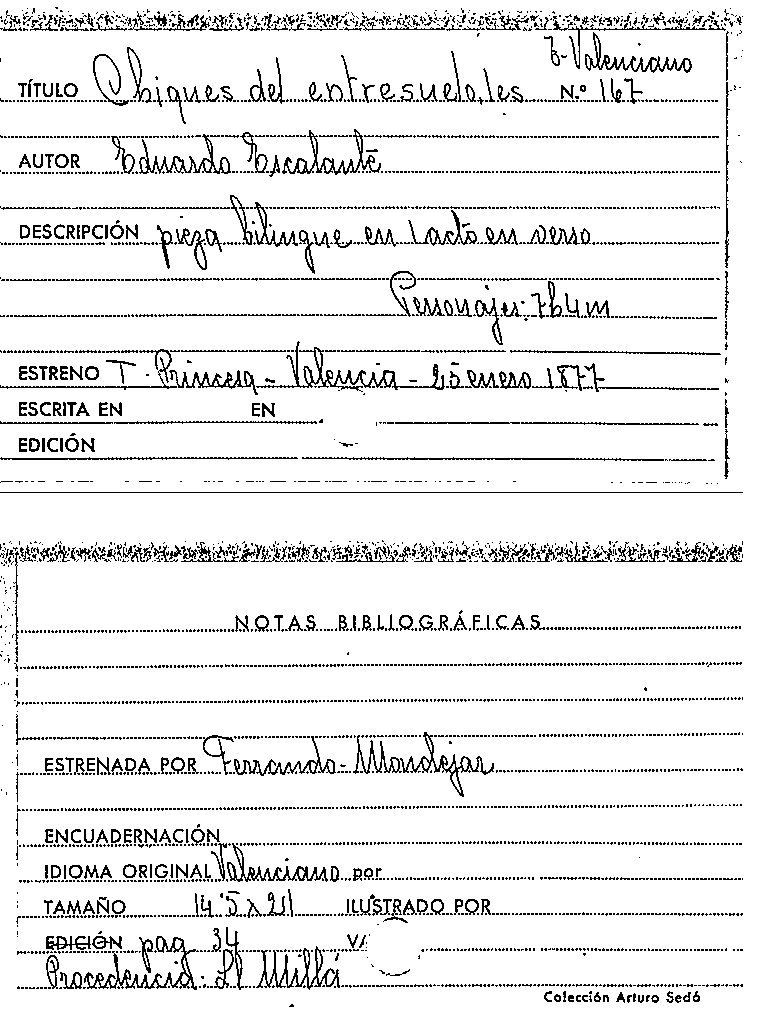 T-Valenciano
TÍTULO Chiques del entresuelo, les N.º 167
AUTOR Eduardo Escalante
DESCRIPCIÓN pieza bilingue en 1 acto en verso
Personajes: 7h4m
ESTRENO T. Princesa - Valencia - 25 enero 1877
ESCRITA EN EN
EDICIÓN
NOTAS BIBLIOGRÁFICAS
ESTRENADA POR Ferrando - Mondejar
ENCUADERNACIÓN
IDIOMA ORIGINAL Valenciano por
TAMAÑO 14'5 x 21 ILUSTRADO POR
EDICIÓN pag 34
Procedencia: Ll Millá
Colección Arturo Sedó